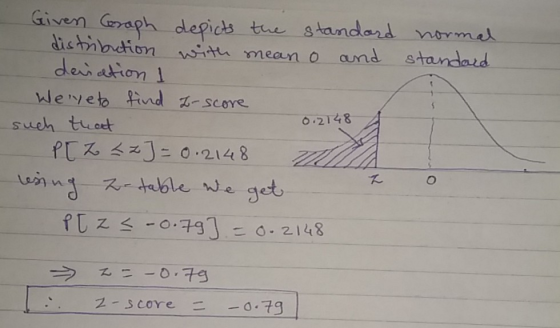 Given Graph depicts the standard normal
distribution with mean 0 and standard
deviation 1
We've to find z-score
such that
P[Z ≤ z] = 0.2148
using Z-table We get
P[Z ≤ -0.79] = 0.2148
⇒ z = -0.79
∴ z-score = -0.79
0.2148
z 0